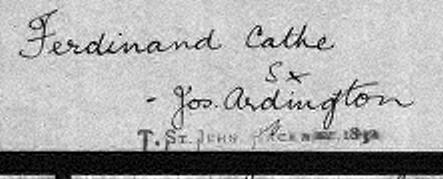 Ferdinand Cathe
Sx
- Jos. Ardington
T. St. John